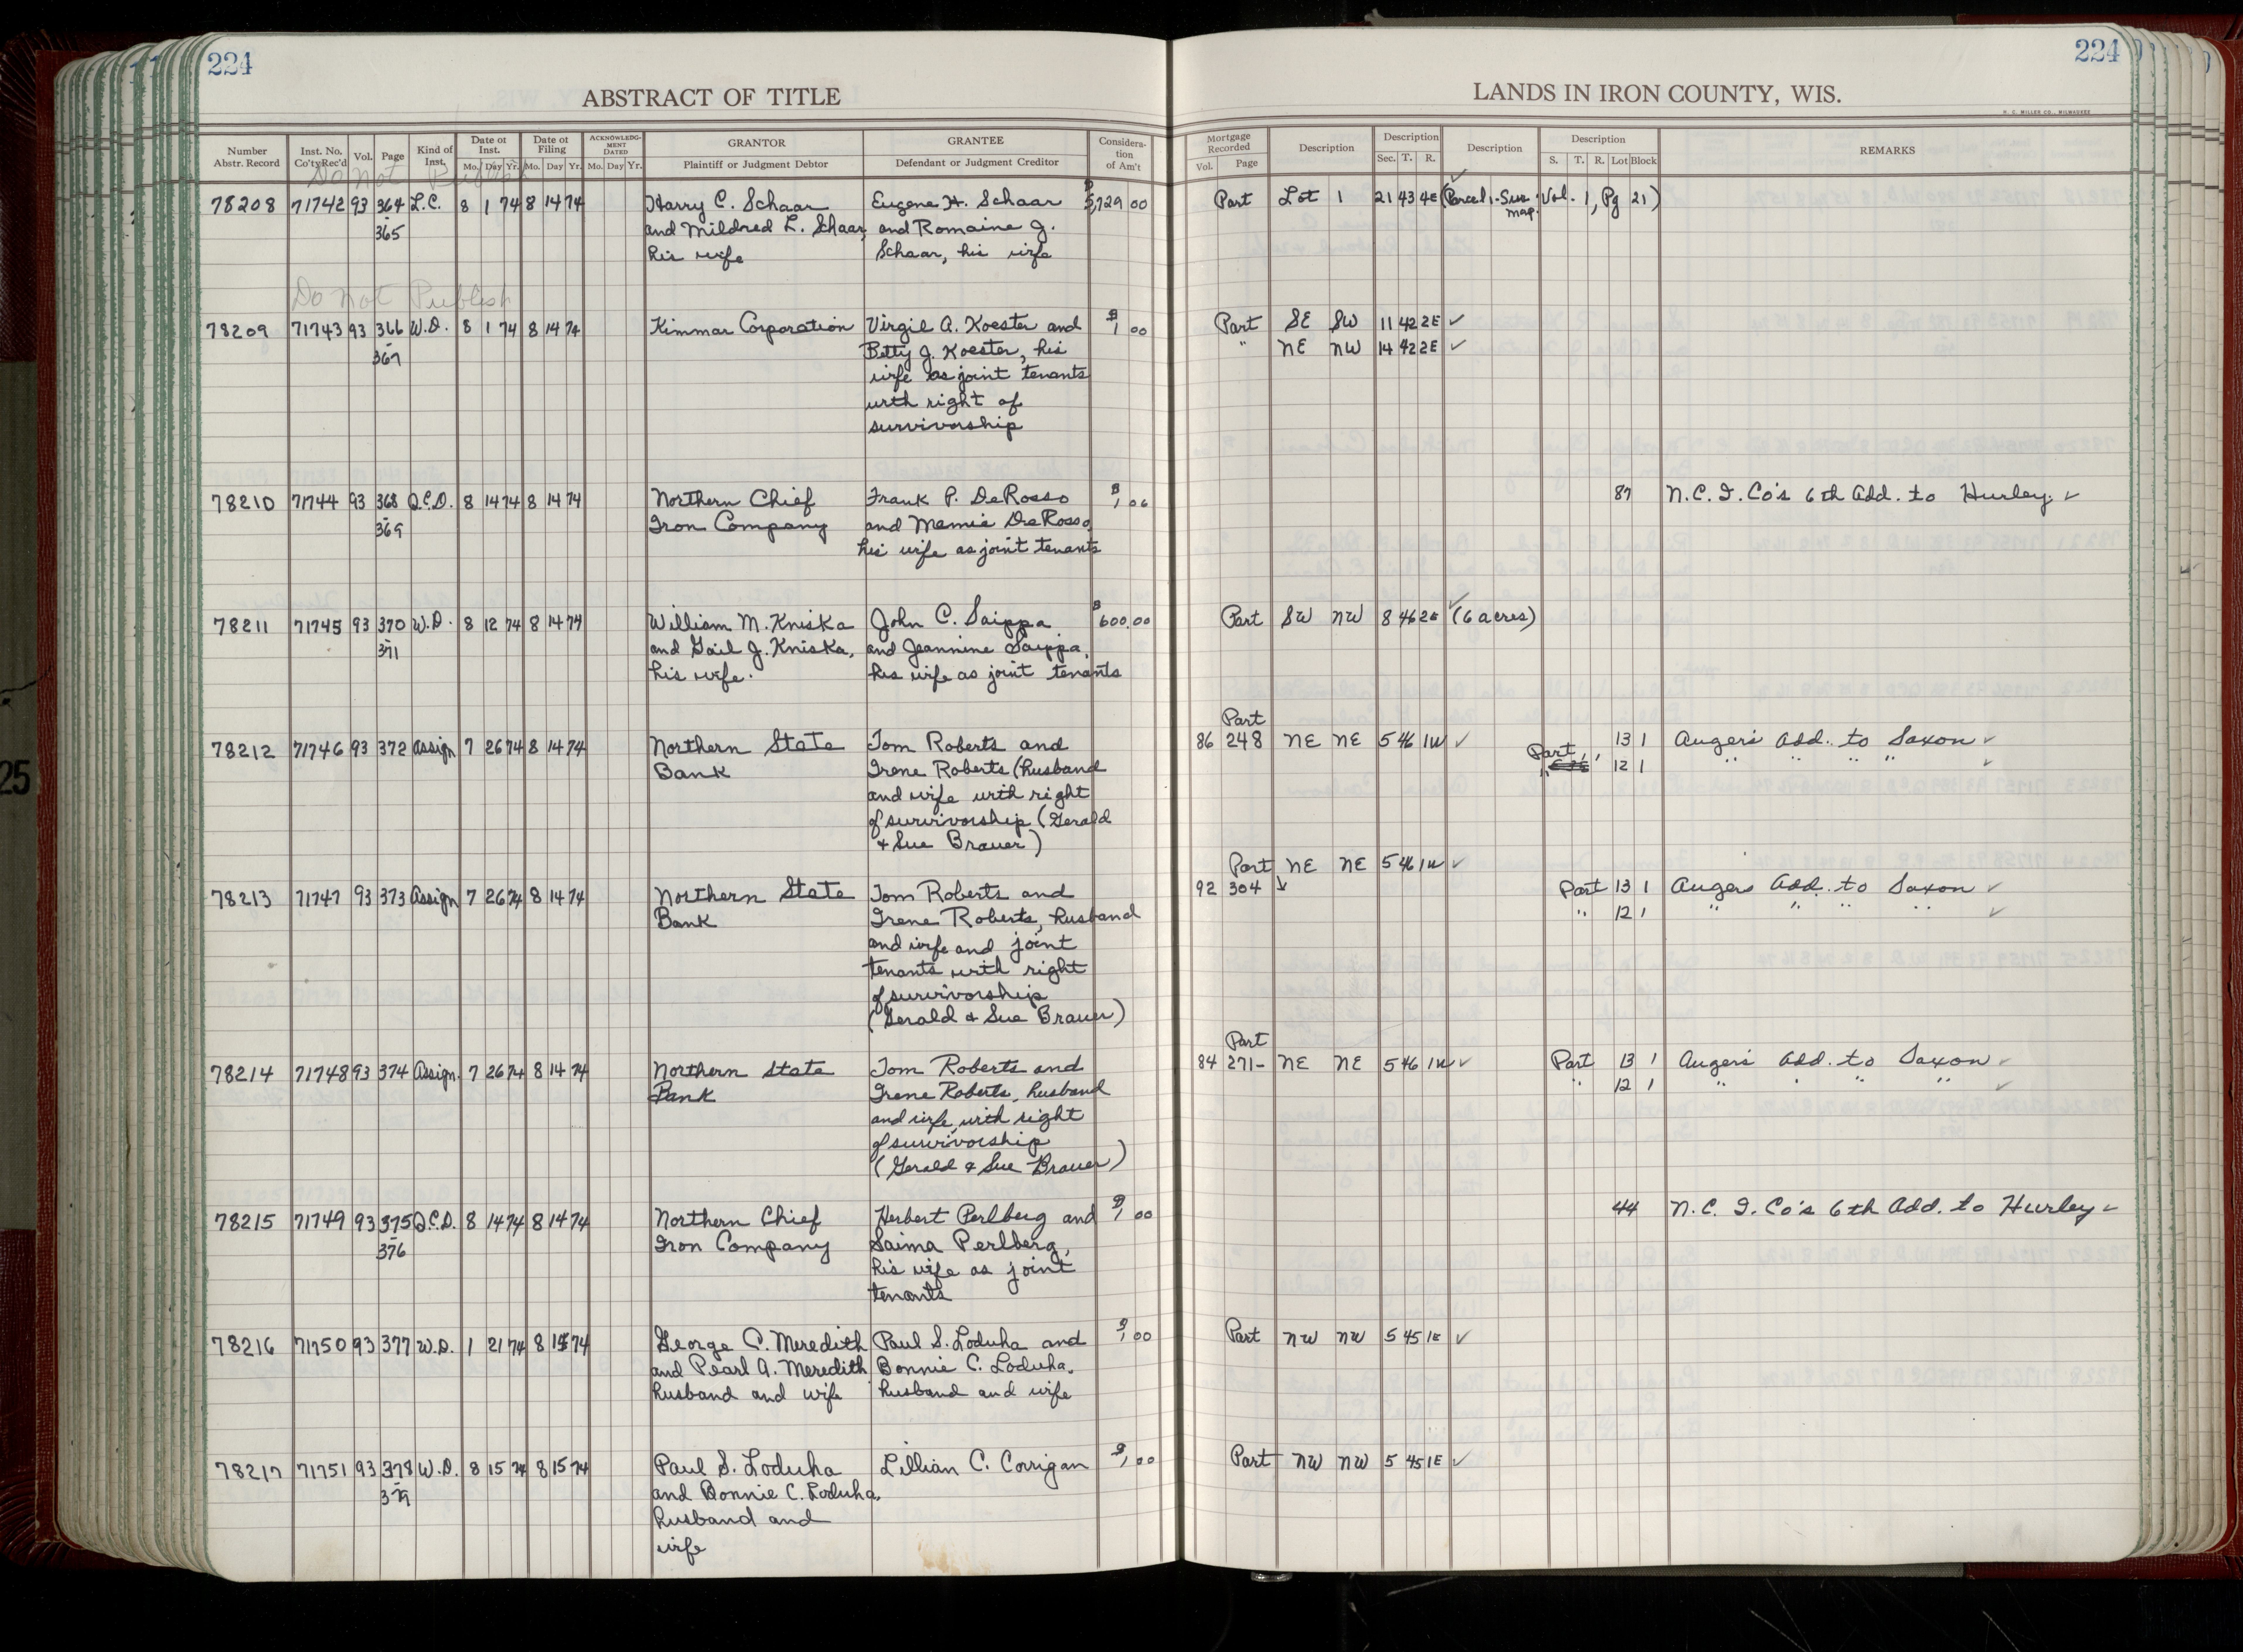 224
224
ABSTRACT OF TITLE
LANDS IN IRON COUNTY, WIS.
H. C. MILLER CO., MILWAUKEE
Number Abstr. Record | Inst. No. Co'ty Rec'd | Vol. | Page | Kind of Inst. | Date of Inst. Mo. Day Yr. | Date of Filing Mo. Day Yr. | ACKNOWLEDGMENT DATED Mo. Day Yr. | GRANTOR Plaintiff or Judgment Debtor | GRANTEE Defendant or Judgment Creditor | Consideration of Am't | Mortgage Recorded Vol. Page | Description | Description Sec. T. R. | Description | Description S. T. R. Lot Block | REMARKS
Do Not Publish
78208 71742 93 364 L.C. 8 1 74 8 14 74 Harry C. Schaar Eugene H. Schaar $5,729 00 Part Lot 1 21 43 4E (Parcel 1 - Sur. map. Vol. 1, Pg 21)
365 and Mildred L. Schaar, and Romaine J.
his wife Schaar, his wife
Do Not Publish
78209 71743 93 366 W.D. 8 1 74 8 14 74 Kimmar Corporation Virgil A. Koester and $1 00 Part SE SW 11 42 2E ✓
367 Betty J. Koester, his " NE NW 14 42 2E ✓
wife as joint tenants
with right of
survivorship
78210 71744 93 368 Q.C.D. 8 14 74 8 14 74 Northern Chief Frank P. DeRosso $1 06 87 N.C.I. Co's 6th Add. to Hurley. ✓
369 Iron Company and Mamie DeRosso,
his wife as joint tenants
78211 71745 93 370 W.D. 8 12 74 8 14 74 William M. Kniska John C. Saippa $600.00 Part SW NW 8 46 2E (6 acres) ✓
371 and Gail J. Kniska, and Jeannine Saippa,
his wife. his wife as joint tenants
Part
78212 71746 93 372 Assign 7 26 74 8 14 74 Northern State Tom Roberts and 86 248 NE NE 5 46 1W ✓ Part 13 1 Auger's Add. to Saxon ✓
Bank Irene Roberts (husband " 12 1 " " " " ✓
and wife with right
of survivorship (Gerald
+ Sue Brauer)
Part NE NE 5 46 1W ✓
78213 71747 93 373 Assign 7 26 74 8 14 74 Northern State Tom Roberts and 92 304 Part 13 1 Augers Add. to Saxon ✓
Bank Irene Roberts, husband " 12 1 " " " " ✓
and wife and joint
tenants with right
of survivorship
(Gerald + Sue Brauer)
Part
78214 71748 93 374 Assign. 7 26 74 8 14 74 Northern State Tom Roberts and 84 271- NE NE 5 46 1W ✓ Part 13 1 Auger's Add. to Saxon ✓
Bank Irene Roberts, husband " 12 1 " " " " ✓
and wife, with right
of survivorship
(Gerald + Sue Brauer)
78215 71749 93 375 Q.C.D. 8 14 74 8 14 74 Northern Chief Herbert Perlberg and $1 00 44 N.C. I. Co's 6th Add. to Hurley ✓
376 Iron Company Saima Perlberg,
his wife as joint
tenants
78216 71750 93 377 W.D. 1 21 74 8 15 74 George C. Meredith Paul S. Loduha and $1 00 Part NW NW 5 45 1E ✓
and Pearl A. Meredith Bonnie C. Loduha,
husband and wife husband and wife
78217 71751 93 378 W.D. 8 15 74 8 15 74 Paul S. Loduha Lillian C. Corrigan $1 00 Part NW NW 5 45 1E ✓
379 and Bonnie C. Loduha,
husband and
wife
25